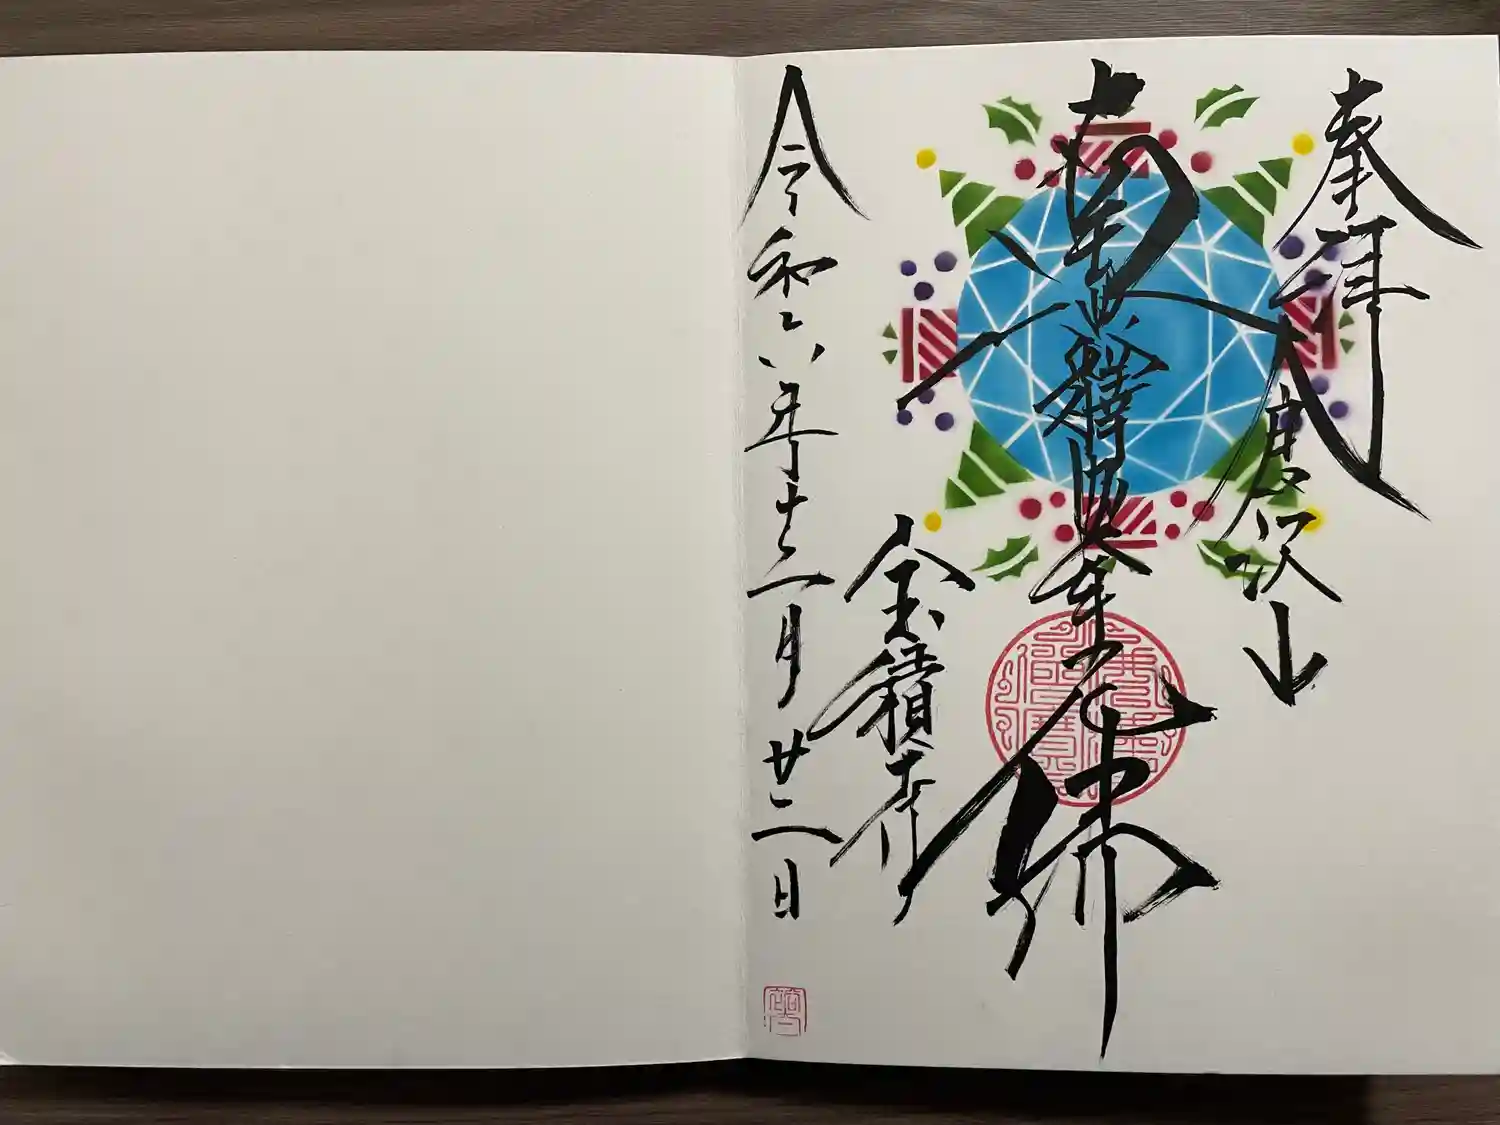 奉拝
唐沢山
南無釋迦牟尼佛
宝積寺
令和六年十二月廿二日